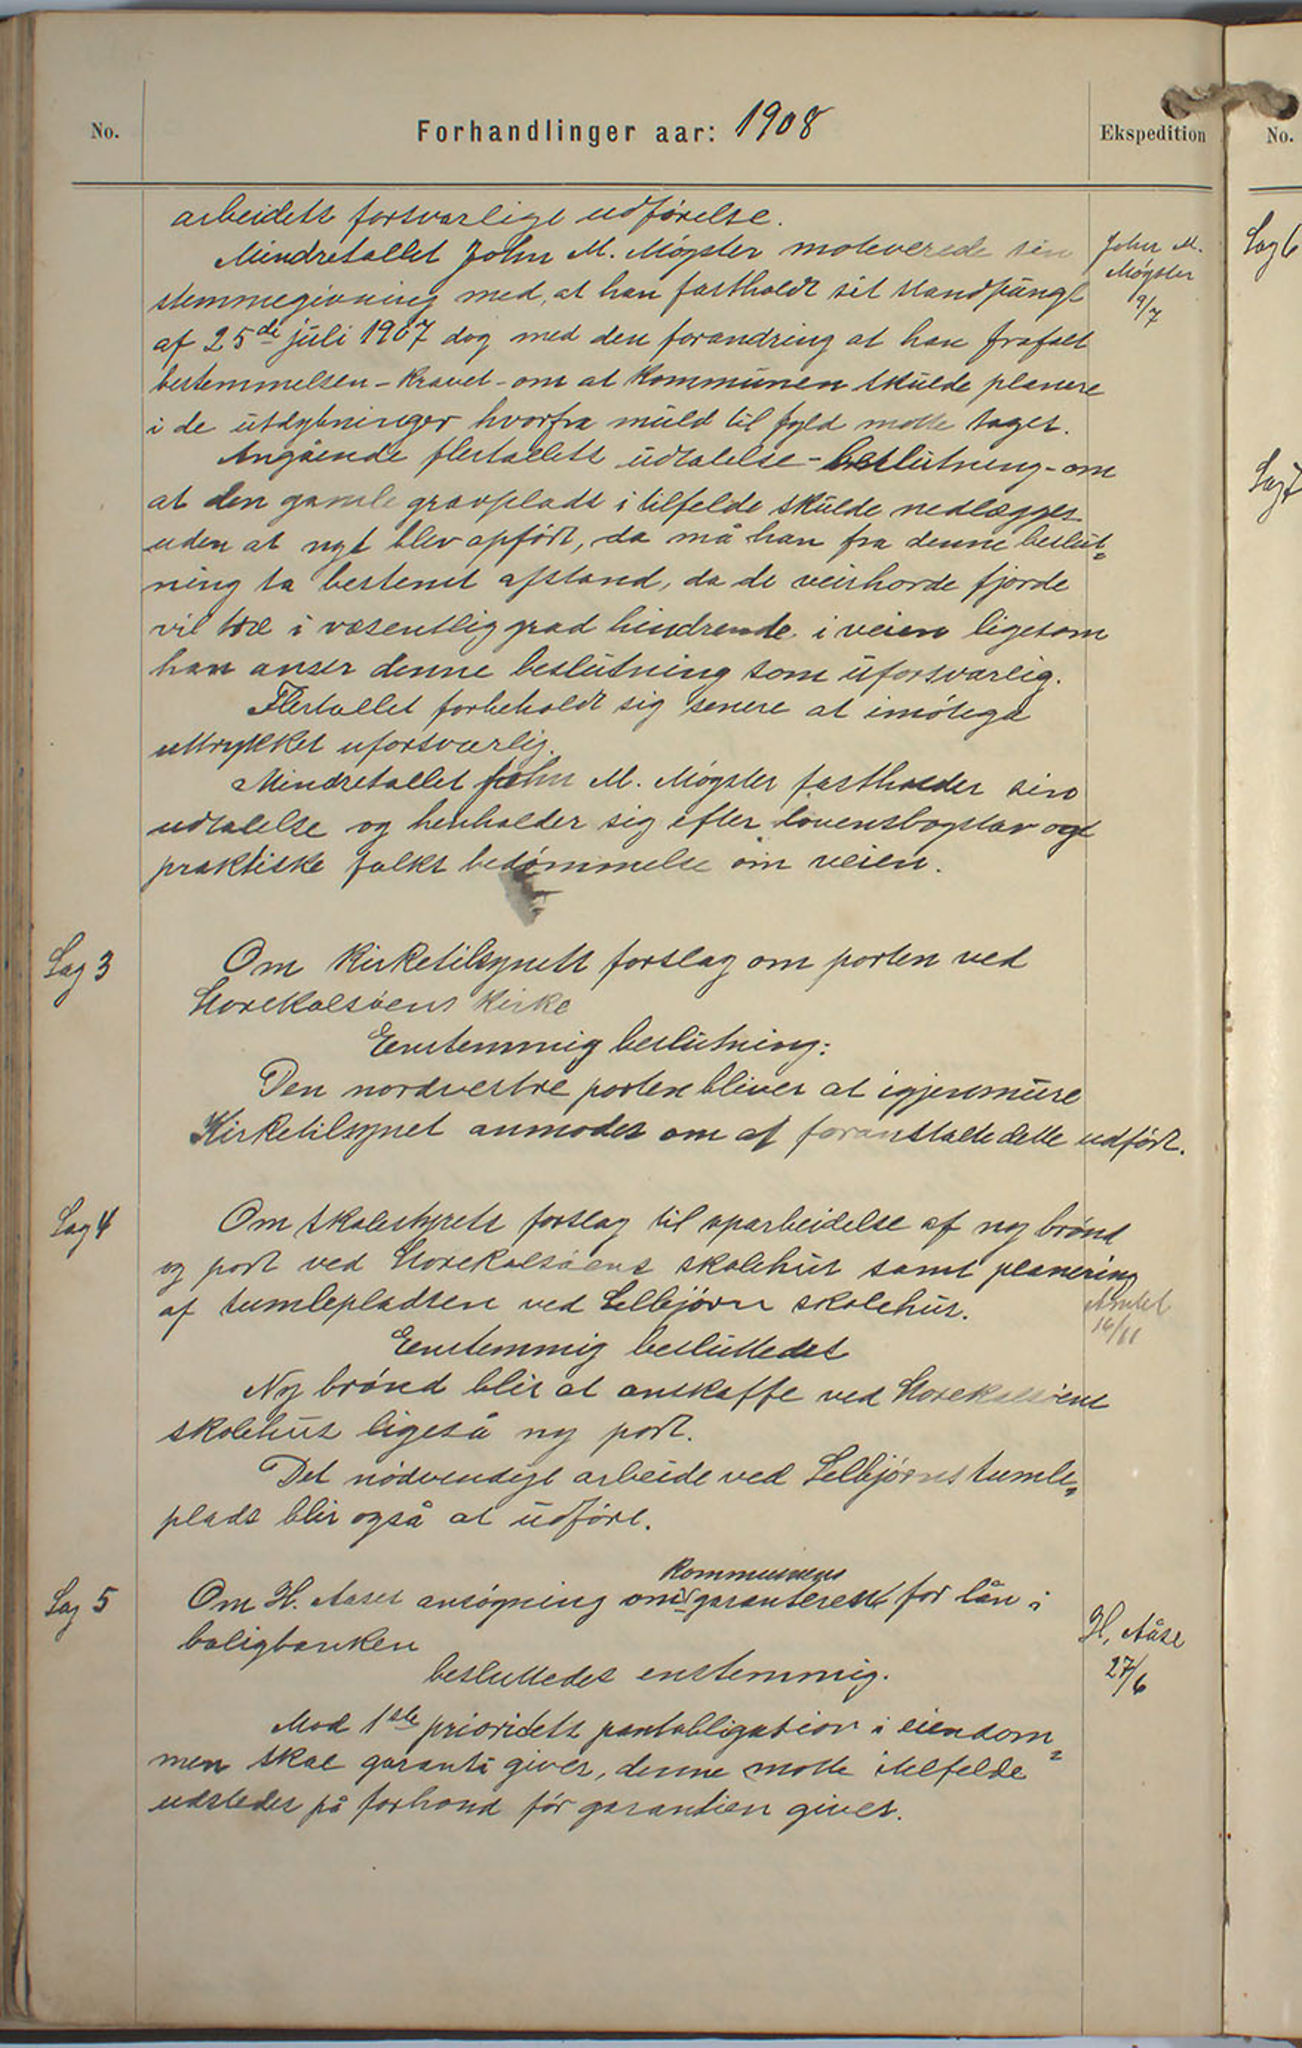 No.
Forhandlinger aar: 1908
Ekspedition
No.
arbeidets forsvarlige udførelse.
Mindretallet John M. Møgster moteverede sin
John M.
Møgster
9/7
stemmegivning med, at han fastholdt sit standpungt
af 25de juli 1907 dog med den forandring at han frafalt
bestemmelsen - kravet - om at kommunen skulde planere
i de utdybninger hvorfra muld til fyld motte tages.
Angående flertallets udtalelse - beslutning - om
at den gamle gravplads i tilfelde skulde nedlægges
uden at nyt blev opført, da må han fra denne beslut=
ning ta bestemt afstand, da de veirharde fjorde
vil i væsentlig grad hindrende i veien ligesom
han anser denne beslutning som uforsvarlig.
Flertallet forbeholdt sig senere at imøtegå
uttrykket uforsvarlig.
Mindretallet John M. Møgster fastholder sin
udtalelse og henholder sig efter lovensbogstav og
praktiske folks bedømmelse om veien.
Sag 3
Om kirketilsynets forslag om porten ved
Storekalsøens kirke
Eenstemmig beslutning:
Den nordvestre porten bliver at igjenmure
Kirketilsynet anmodes om at foranstalte dette udført.
Sag 4
Om skolestyrets forslag til oparbeidelse af ny brønd
og port ved Storekalsøens skolehus samt planering
af tumlepladsen ved Selbjørn skolehus.
Anmelt
16/11
Eenstemmig besluttedes
Ny brønd blir at anskaffe ved Storekalsøens
skolehus ligeså ny port.
Det nødvendige arbeide ved Selbjørns tumle=
plads blir også at udføre.
Sag 5
Om H. Aases ansøgning om kommunens garanti for lån i
boligbanken
H. Aåse
27/6
besluttedes enstemmig.
Mod 1ste prioritets pantobligation i eiendom=
men skal garanti gives, denne motte itilfelde
udstedes på forhond før garantien gives.
Sag 6
Sag 7